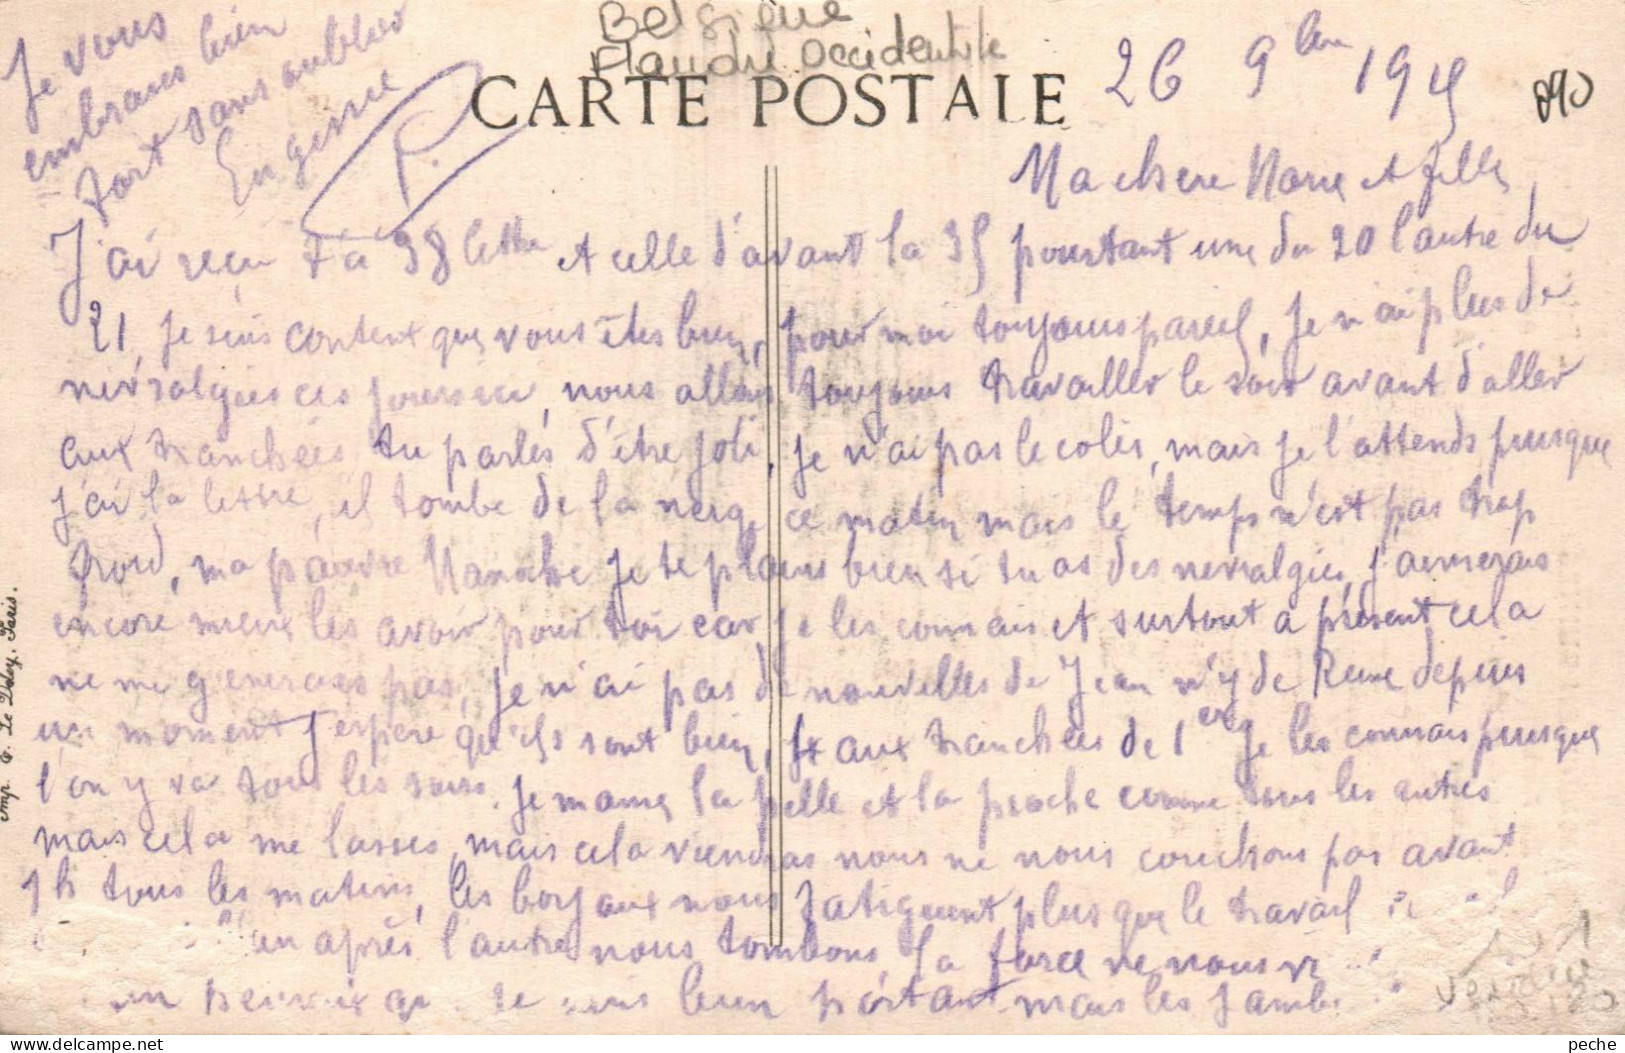 Belgique
Flandre Occidentale
CARTE POSTALE
26 9bre 1915
890
Ma chere Marie et fille
J'ai reçu ta 38 lettre et celle d'avant la 35 pourtant une du 20 l'autre du
21, je suis content que vous êtes bien, pour moi toujours pareil, je n'ai plus de
nevralgies ces jours ici, nous allons toujours travailler le soir avant d'aller
aux tranchées tu parles d'être joli, je n'ai pas le colis, mais je l'attends puisque
j'ai la lettre, il tombe de la neige ce matin mais le temps n'est pas trop
froid, ma pauvre je te plains bien si tu as des nevralgies, j'aimerais
encore mieux les avoir pour toi car je les connais et surtout a présent cela
ne me pas, je n'ai pas de nouvelles de Jean n'y de Reine depuis
un moment j'espere qu'ils sont bien, aux tranchées de 1er je les connais puisque
l'on y va tous les soirs. je la pelle et la pioche comme tous les autres
mais cela me lasses, mais cela viendras nous ne nous couchons pas avant
1h tous les matins, les boyaux nous fatiguent plus que le travail
un après l'autre nous tombons, la force ne nous
suis bien portant mais les jambes
Je vous
embrasses bien
fort sans oublier
Eugenie
P.
Imp. E. Le Deley, Paris.
peche
www.delcampe.net